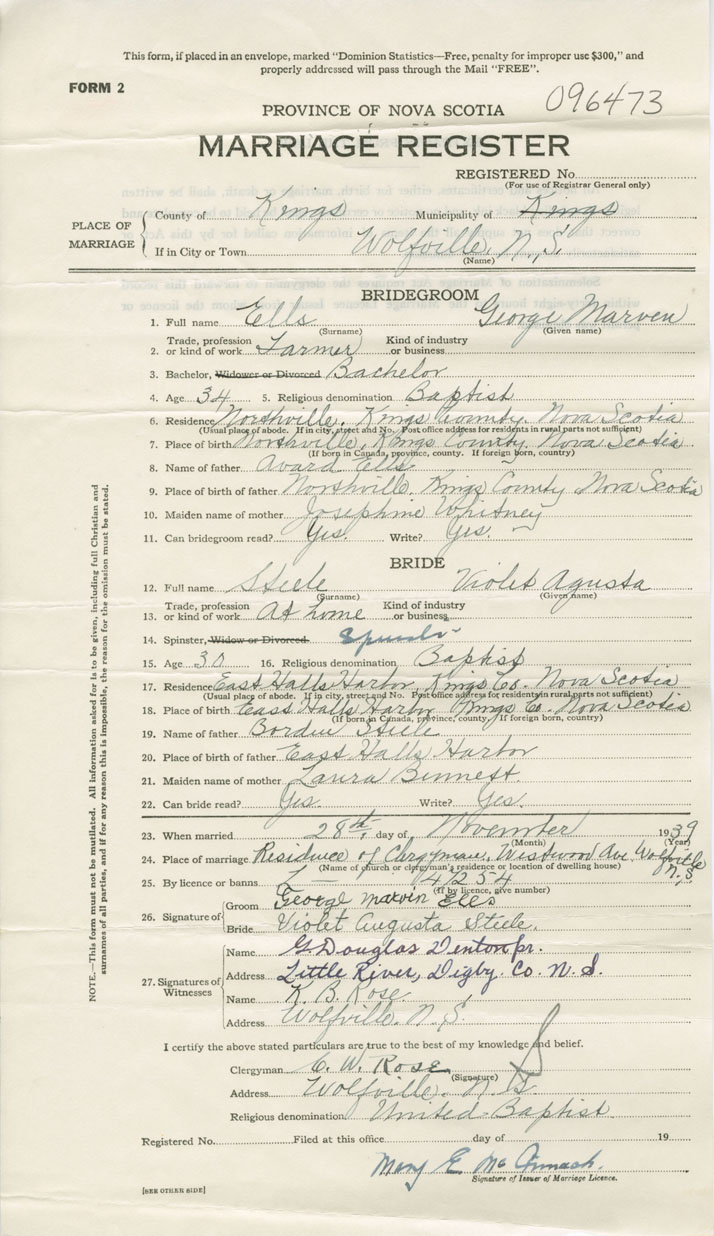 This form, if placed in an envelope, marked "Dominion Statistics—Free, penalty for improper use $300," and
properly addressed will pass through the Mail "FREE".
FORM 2
096473
PROVINCE OF NOVA SCOTIA
MARRIAGE REGISTER
REGISTERED No.
(For use of Registrar General only)
PLACE OF MARRIAGE
County of Kings Municipality of Kings
If in City or Town Wolfville, N.S.
(Name)
BRIDEGROOM
1. Full name Ells George Marven
(Surname) (Given name)
2. Trade, profession or kind of work Farmer Kind of industry or business
3. Bachelor, Widower or Divorced Bachelor
4. Age 34 5. Religious denomination Baptist
6. Residence Northville, Kings County, Nova Scotia
(Usual place of abode. If in city, street and No. Post office address for residents in rural parts not sufficient)
7. Place of birth Northville, Kings County, Nova Scotia
(If born in Canada, province, county. If foreign born, country)
8. Name of father Avard Ells
9. Place of birth of father Northville, Kings County Nova Scotia
10. Maiden name of mother Josephine Whitney
11. Can bridegroom read? Yes. Write? Yes.
BRIDE
12. Full name Steele Violet Agusta
(Surname) (Given name)
13. Trade, profession or kind of work At home Kind of industry or business
14. Spinster, Widow or Divorced.
15. Age 30 16. Religious denomination Baptist
17. Residence East Halls Harbor, Kings Co. Nova Scotia
(Usual place of abode. If in city, street and No. Post office address for residents in rural parts not sufficient)
18. Place of birth East Halls Harbor Kings Co. Nova Scotia
(If born in Canada, province, county. If foreign born, country)
19. Name of father Borden Steele
20. Place of birth of father East Halls Harbor
21. Maiden name of mother Laura Bennett
22. Can bride read? Yes. Write? Yes.
23. When married 28th, day of November 1939
(Month) (Year)
24. Place of marriage Residence of Clergyman, Westwood Ave. Wolfville N.S.
(Name of church or clergyman's residence or location of dwelling house)
25. By licence or banns 47254
(If by licence, give number)
26. Signature of
Groom George Marvin Ells
Bride Violet Augusta Steele.
27. Signatures of Witnesses
Name G. Douglas Denton jr.
Address Little River, Digby Co. N.S.
Name K. B. Rose
Address Wolfville, N.S.
I certify the above stated particulars are true to the best of my knowledge and belief.
Clergyman C. W. Rose
(Signature)
Address Wolfville, N.S.
Religious denomination United Baptist
Registered No. Filed at this office day of 19
Mary E.
Signature of Issuer of Marriage Licence.
[SEE OTHER SIDE]
NOTE.—This form must not be mutilated. All information asked for is to be given, including full Christian and
surnames of all parties, and if for any reason this is impossible, the reason for the omission must be stated.